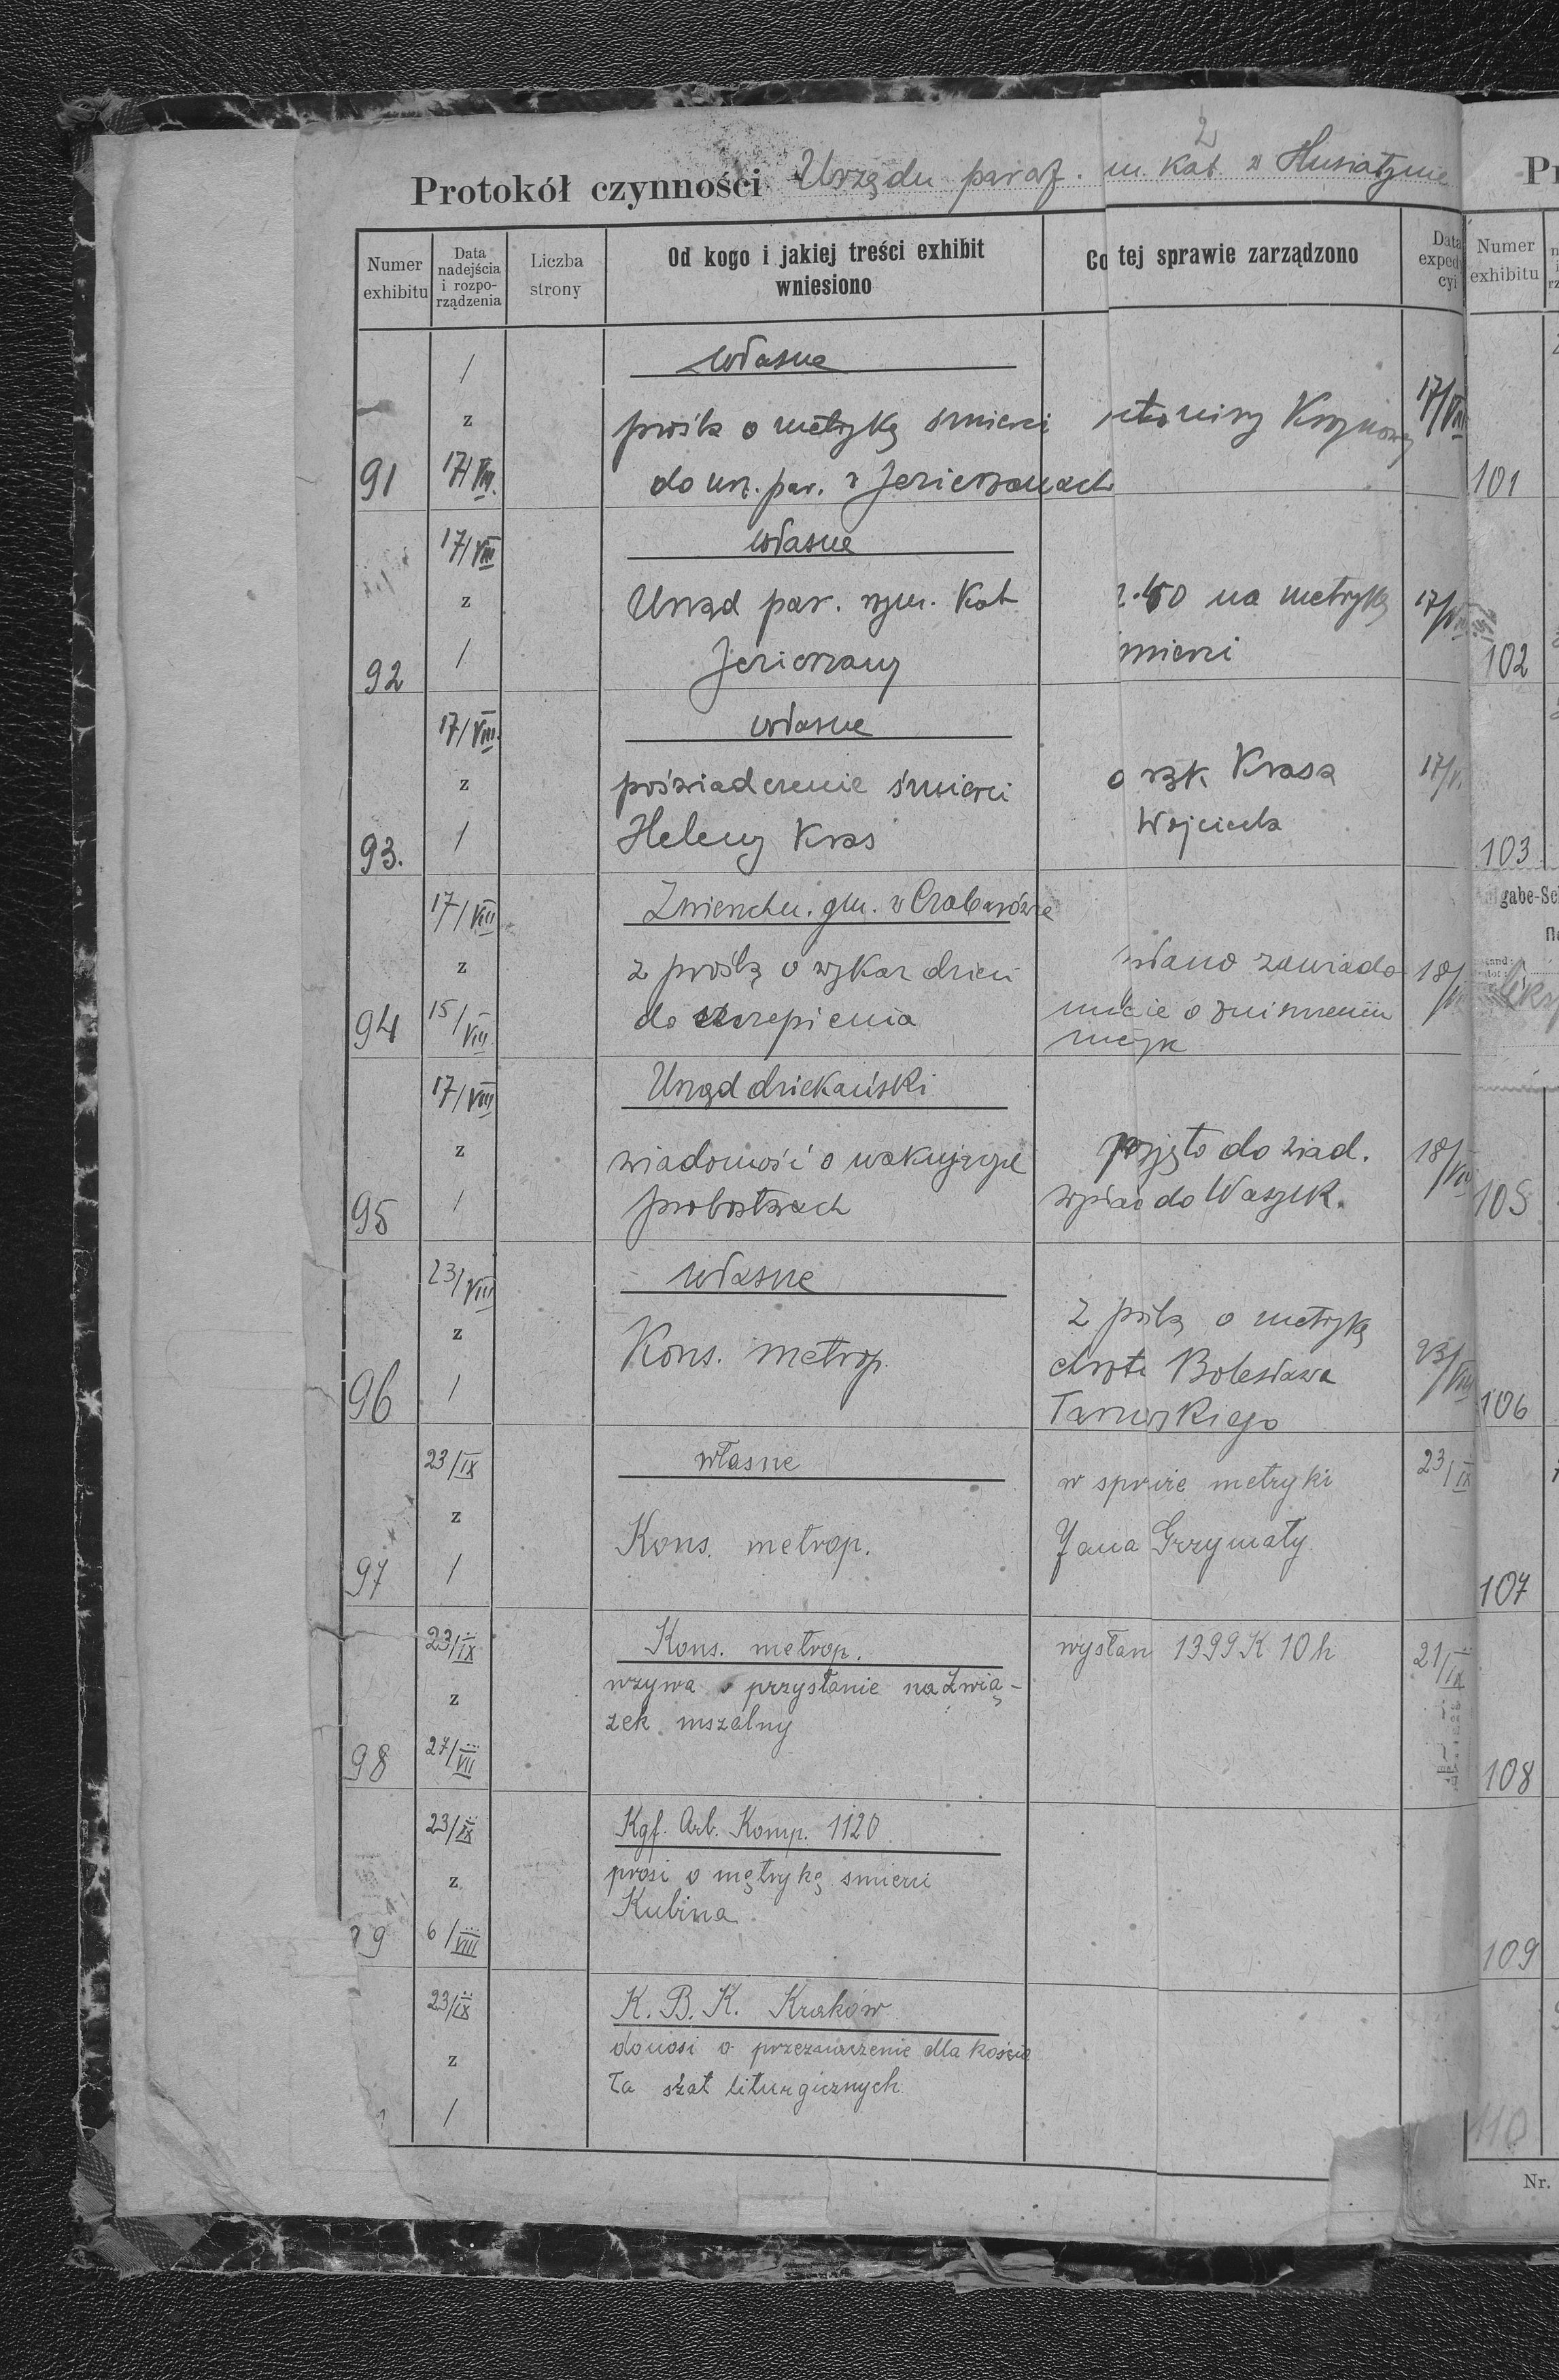 2
Protokół czynności Urzędu paraf. w Husiatynie
Numer exhibitu
Data nadejścia i rozporządzenia
Liczba strony
Od kogo i jakiej treści exhibit wniesiono
Co tej sprawie zarządzono
Data expedycyi
Numer exhibitu
91
/
z
17/VIII.
własne
prośba o metrykę śmierci
do urz. par. w Jezierzanach
17/VIII
101
92
17/VIII
z
/
własne
Urząd par. rzym. kat
Jezierzany
na metrykę
17/VIII
102
93.
17/VIII.
z
/
własne
poświadczenie śmierci
Heleny Kras
Krasa
Wojciecha
17/V
103
94
17/VIII
z
15/VIII
Zwierzchn. gm. w Czabarówce
z prośbą o wykaz dzieci
do szczepienia
zawiado
mienie o zniszczeniu
18/
gabe-Se
95
17/VIII
z
/
Urząd dziekański
wiadomość o wakujących
probostwach
przyjęto do wiad.
18/VIII
105
96
23/VIII
z
/
własne
Kons. metrop.
z prośbą o metrykę
chrztu Bolesława
23/VIII
106
97
23/IX
z
/
własne
Kons. metrop.
w sprawie metryki
Jana Grzymały
23/IX
107
98
23/IX
z
27/VIII
Kons. metrop.
wzywa o przysłanie na Zwią-
zek mszalny
wysłan 1399 K 10 h
21/IX
108
99
23/IX
z
6/VIII
Kgf. Arb. Komp. 1120
prosi o metrykę śmierci
Kubina
109
23/IX
z
/
K. B. K. Kraków
donosi o przeznaczenie dla kościo
ła szat liturgicznych
110
Nr.